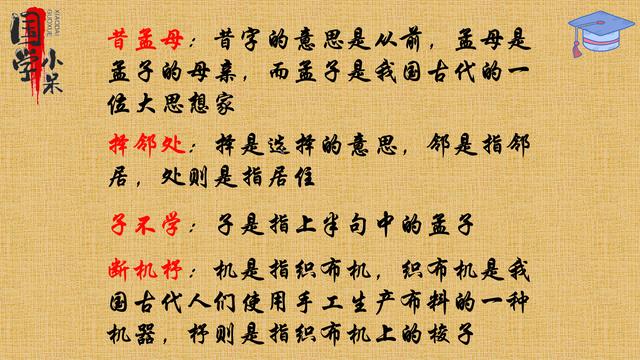 国学
小米
XIAODAI
GUOXUE
昔孟母：昔字的意思是从前，孟母是
孟子的母亲，而孟子是我国古代的一
位大思想家
择邻处：择是选择的意思，邻是指邻
居，处则是指居住
子不学：子是指上半句中的孟子
断机杼：机是指织布机，织布机是我
国古代人们使用手工生产布料的一种
机器，杼则是指织布机上的梭子